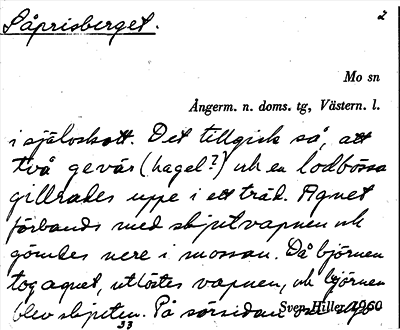 Såprisberget.
2
Mo sn
Ångerm. n. doms. tg, Västern. l.
i självskott. Det tillgick så, att
två gevär (hagel?) och en lodbössa
gillrades uppe i ett träd. Agnet
förbands med skjutvapnen och
gömdes nere i mossan. Då björnen
tog agnet, utlöstes vapnen, och björnen
blev skjuten. På sörsidan
Sven Hiller 1960
23